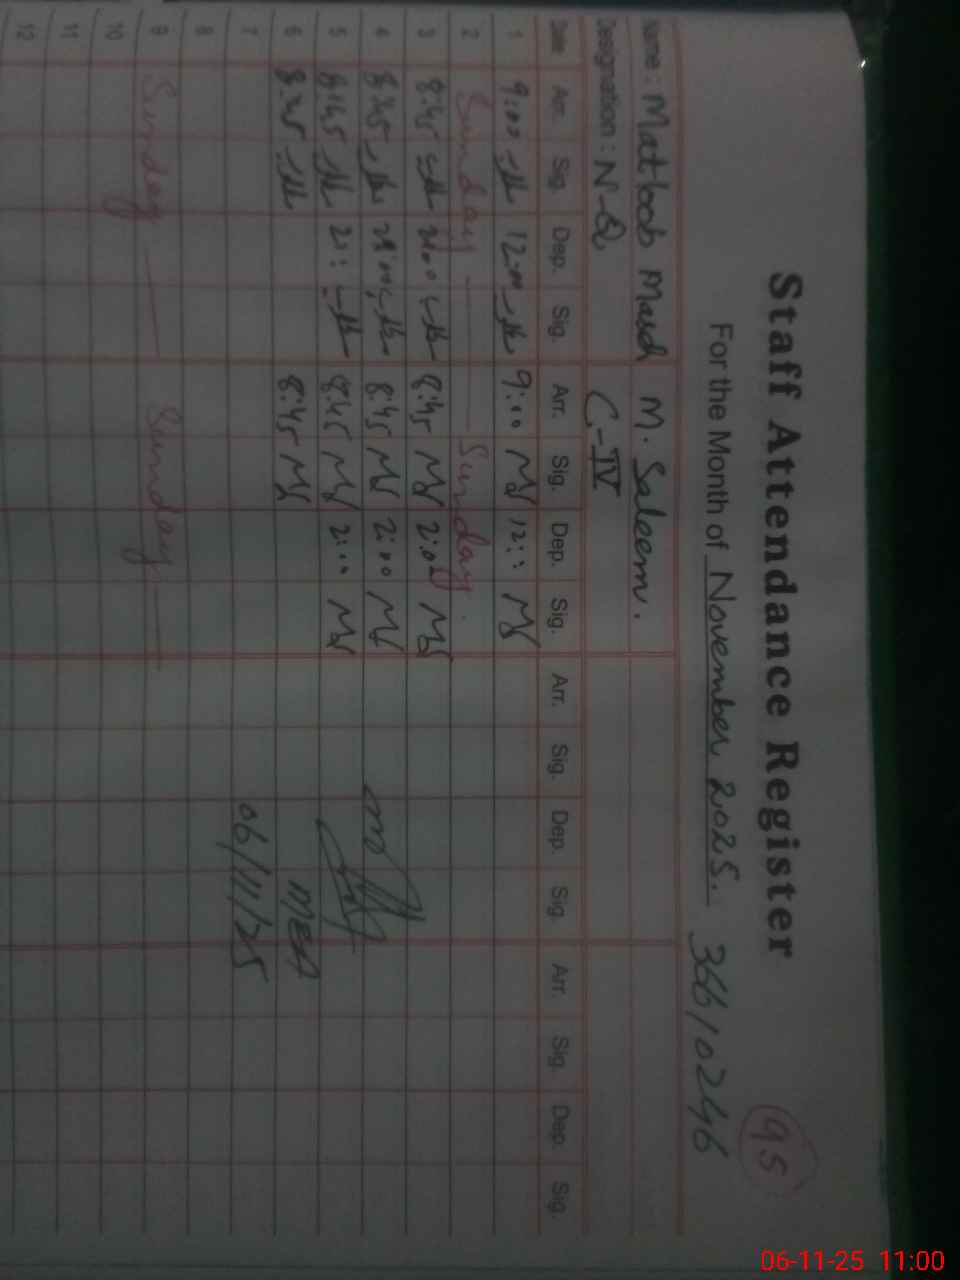 95
Staff Attendance Register
For the Month of November 2025. 36610246
Name : Matloob Masih M. Saleem.
Designation : N-Q C-IV
Date Arr. Sig. Dep. Sig. Arr. Sig. Dep. Sig. Arr. Sig. Dep. Sig. Arr. Sig. Dep. Sig.
1 9:00 12:00 9:00 12:00
2 Sunday Sunday
3 8:45 2:00 8:45 2:00
4 8:45 2:00 8:45 2:00
5 8:45 2: 8:45 2:00
6 8:45 8:45 MEA
7 06/11/25
8
9 Sunday Sunday
10
11
12
06-11-25 11:00